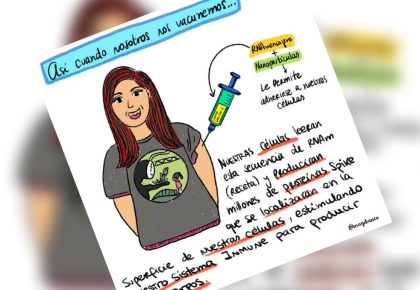 Así cuando nosotros nos vacunemos...
RNAmensajero
+
Nanopartículas
↓
Le permite
adherirse a nuestras
células
Nuestras células leerán
esta secuencia de RNAm
(receta) y producirán
millones de proteínas Spike
que se localizaran en la
superficie de nuestras células, estimulando
nuestro sistema inmune para producir